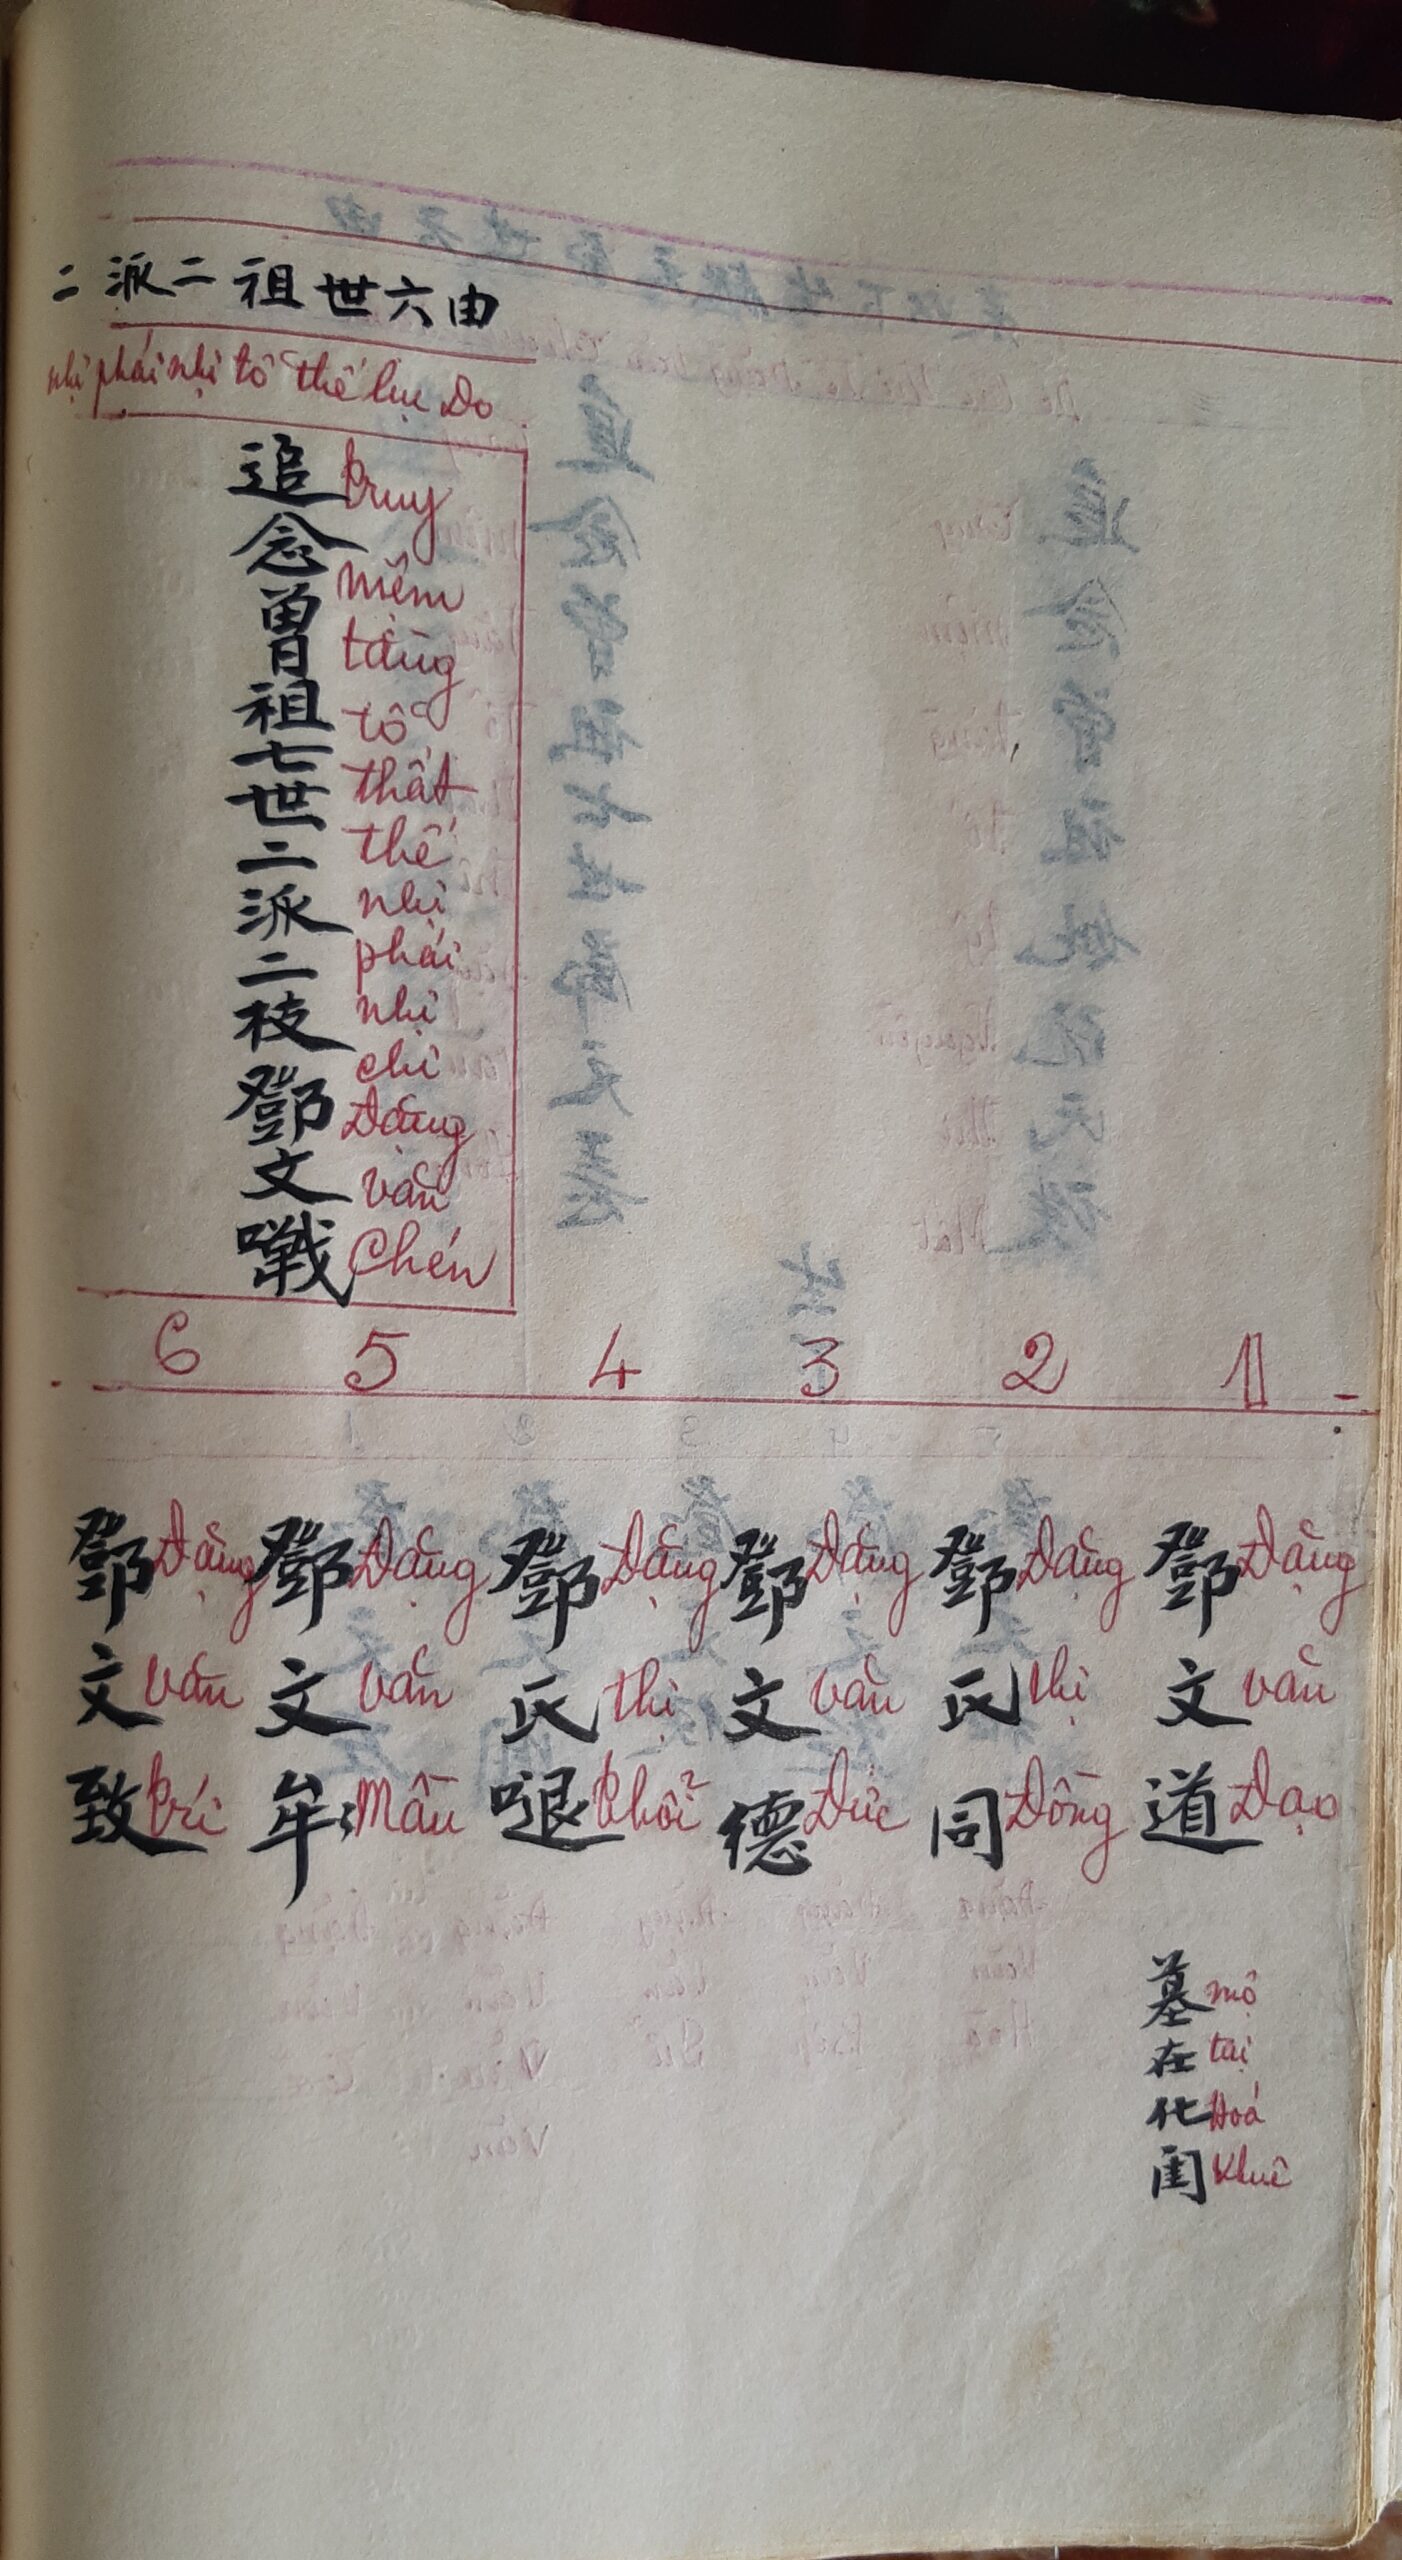 二派二祖世六由
nhị phái nhị tổ thế lục Do
追念曾祖七世二派二枝鄧文嘰
truy niệm tằng tổ thất thế nhị phái nhị chi Đặng văn Chén
6 5 4 3 2 1
鄧文道
Đặng văn Đạo
墓在化閨
mộ tại Hoá Khuê
鄧氏同
Đặng thị Đồng
鄧文德
Đặng văn Đức
鄧氏𠺙
Đặng thị Thôi
鄧文牟
Đặng văn Mâu
鄧文致
Đặng văn trí